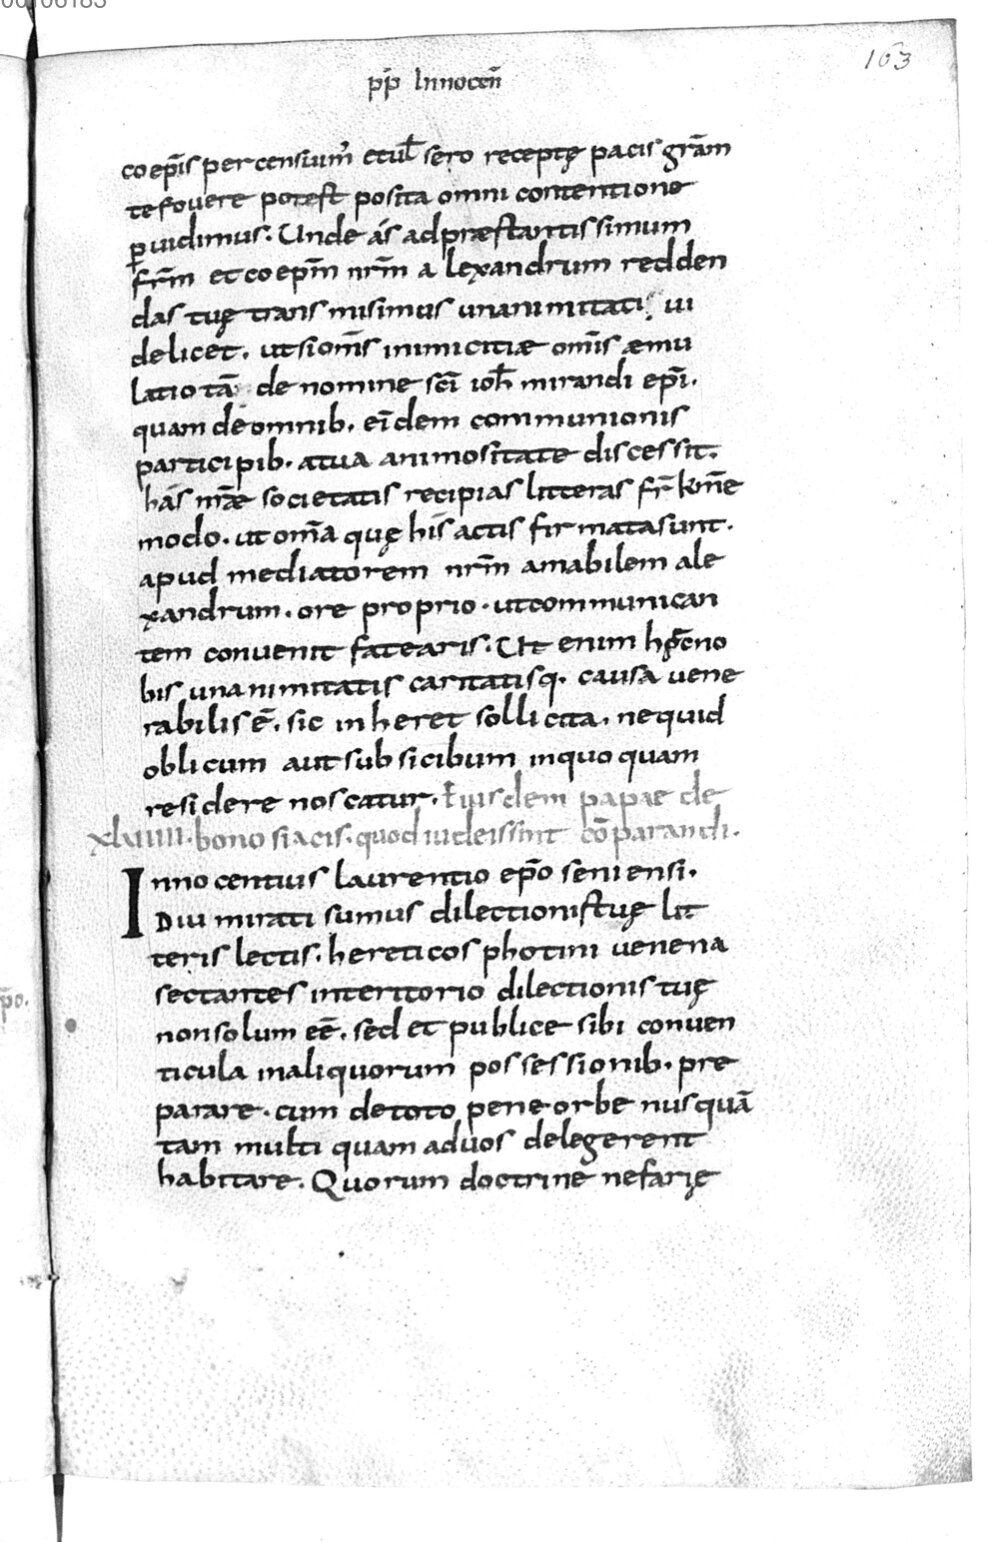 163
pp̄ Innocen̄
coep̄is percensium̄ et ul̄ sero receptę pacis grām
te fouere potest posita omni contentione
ꝑuidimus. Unde ás ad præstantissimum
fr̄m et coep̄m nr̄m alexandrum redden
das tuę transmisimus unanimitati, ui
delicet. ut si om̄s inimicitiæ om̄is æmu
latio tā de nomine sc̄i ioh̄ mirandi ep̄i.
quam de omnib. eīdem communionis
participib. a tua animositate discessit.
hás nr̄æ societatis recipias litteras fr̄ km̄e
modo. ut om̄a quę hís actis firmata sunt.
apud mediatorem nr̄m amabilem ale
xandrum. ore proprio. ut communican
tem conuenit fatearis. Ut enim no
bis unanimitatis caritatisq. causa uene
rabilis ē. sic inheret sollicita. nequid
oblicum aut subsicibum in quoquam
residere noscatur. Eiusdem papae de
xluiiii. bonosiacis. quod iudeis sint cō parandi.
Innocentius laurentio ep̄o seniensi.
Diu mirati sumus dilectionis tuę lit
teris lectis. hereticos photini uenena
sectantes in territorio dilectionis tuę
non solum eē. sed et publice sibi conuen
ticula in aliquorum possessionib. pre
parare. cum de toto pene orbe nusquā
tam multi quam ad uos delegerent
habitare. Quorum doctrine nefarię